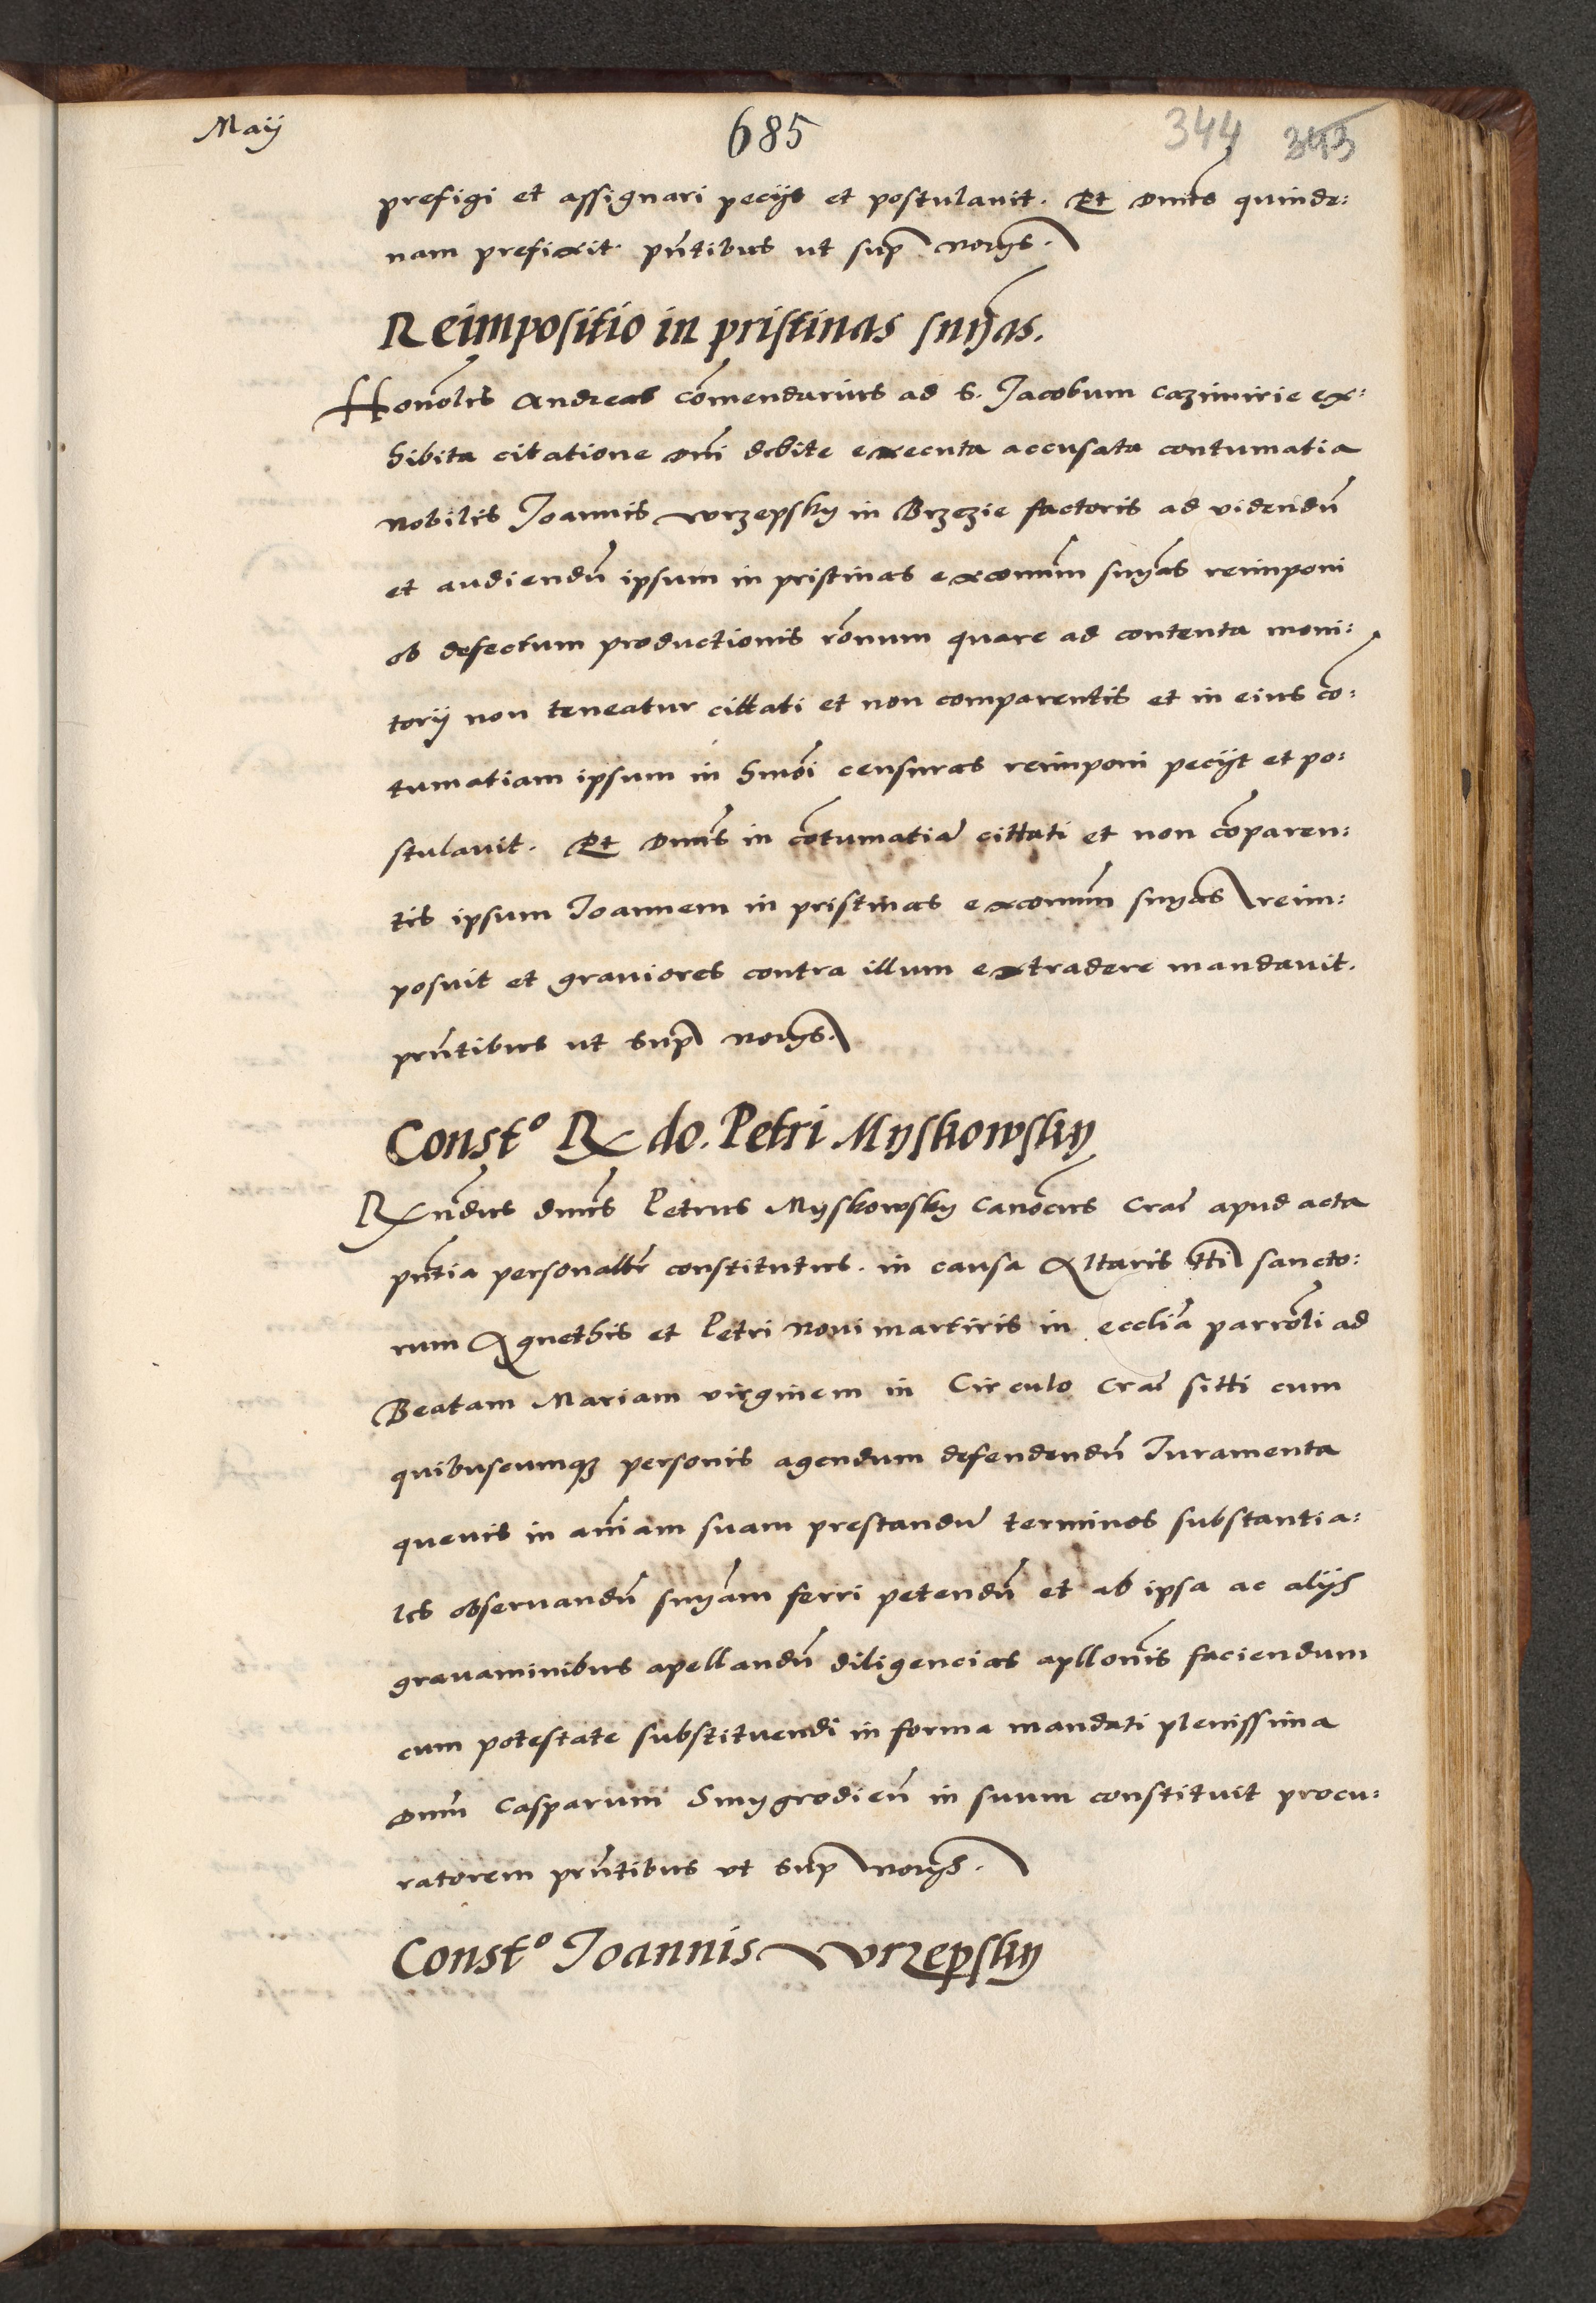 Maij 685 344 343
prefigi et assignari pecijt et postulavit. Et Dnus quinde:
nam prefixit pñtibus ut sup norijs.
Reimpositio in pristinas snias.
Honolis Andreas cõmendarius ad S. Jacobum Cazimirie ex:
hibita citatione Dni debite executa accusata contumatia
Nobilis Joannis Wrzepsky in Brzezie factoris ad videndũ
et audiendũ ipsum in pristinas excomũm snias reimponi
ob defectum productionis rõnum quare ad contenta moni:
torij non teneatur cittati et non comparentis et in eius cõ:
tumatiam ipsum in hmõi censuras reimponi pecijt et po:
stulavit. Et Dnus in cõtumatiã cittati et non cõparen:
tis ipsum Joannem in pristinas excomũm snias reim:
posuit et graviores contra illum extradere mandavit.
prñtibus ut sup norijs.
Constº Rx do. Petri Myskowsky
Rxndus dnus Petrus Myskowsky Canõcus Craĩ apud acta
pñtia personaltr constitutus. in causa Altaris ttĩ sancto:
rum Agnethis et Petri novi martiris in ecclĩa parrõli ad
Beatam Mariam virginem in Circulo Craĩ sitti cum
quibuscumq personis agendum defendendũ Juramenta
quevis in aĩam suam prestandũ terminos substantia:
les observandũ sniam ferri petendũ et ab ipsa ac alijs
gravaminibus apellandũ diligencias apllonis faciendum
cum potestate substituendi in forma mandati plenissima
Dnm Casparum Smygrodieñ in suum constituit procu:
ratorem prñtibus ut sup norijs.
Constº Joannis Wrzepsky